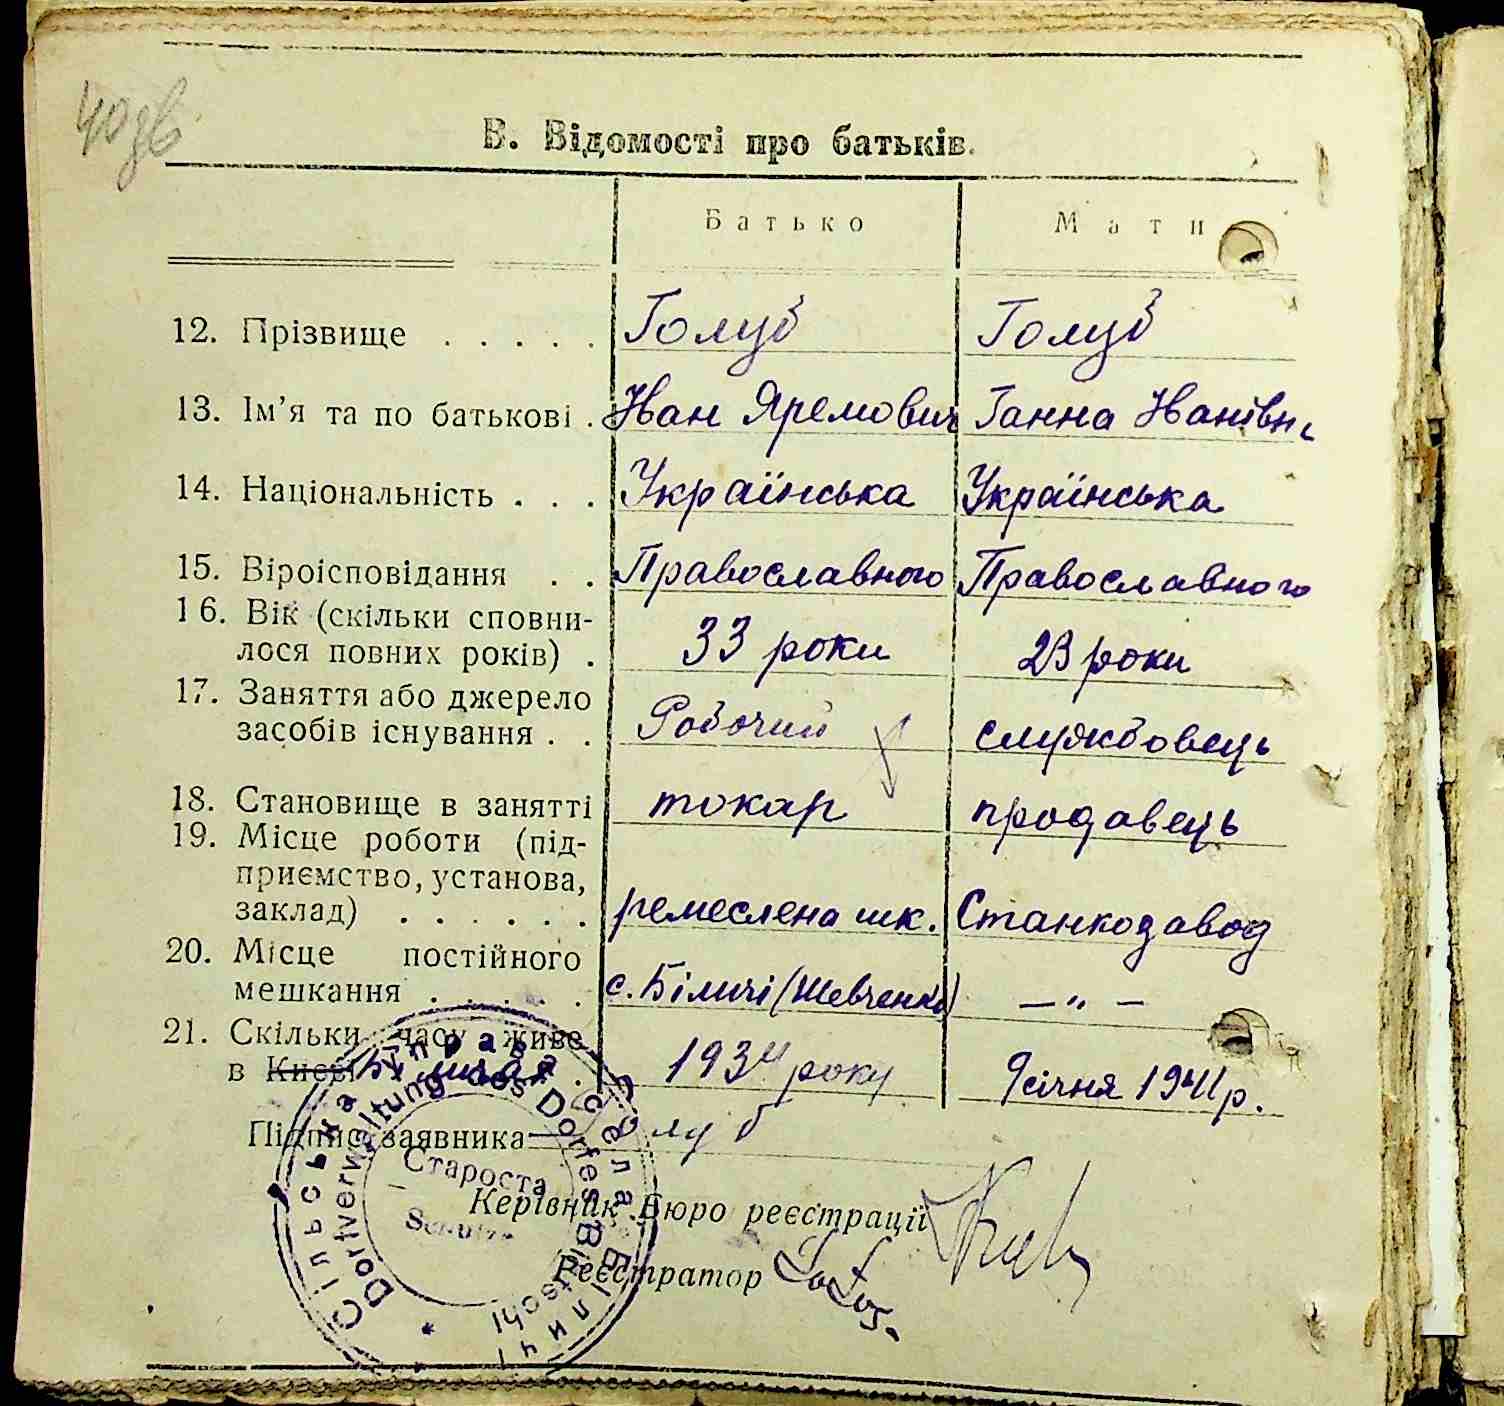 В. Відомості про батьків.
Батько Мати
12. Прізвище . . . . . Голуб Голуб
13. Ім'я та по батькові . Иван Яремович Ганна Иванівн
14. Національність . . . Українська Українська
15. Віроісповідання . . Православного Православного
16. Вік (скільки сповни-
лося повних років) . 33 роки 23 роки
17. Заняття або джерело
засобів існування . . Робочий службовець
18. Становище в занятті токар продавець
19. Місце роботи (під-
приємство, установа,
заклад) . . . . . . ремеслена шк. Станкозавод
20. Місце постійного
мешкання . . . . . с. Біличі (Шевченка) — „ —
21. Скільки часу живе
в Києві Біличах . 1934 року 9 січня 1941 р.
Підпис заявника Голуб
Керівник Бюро реєстрації
Реєстратор
Сільська управа села Біличі
Dorfverwaltung des Dorfes Bilitschi
Староста
Schulze